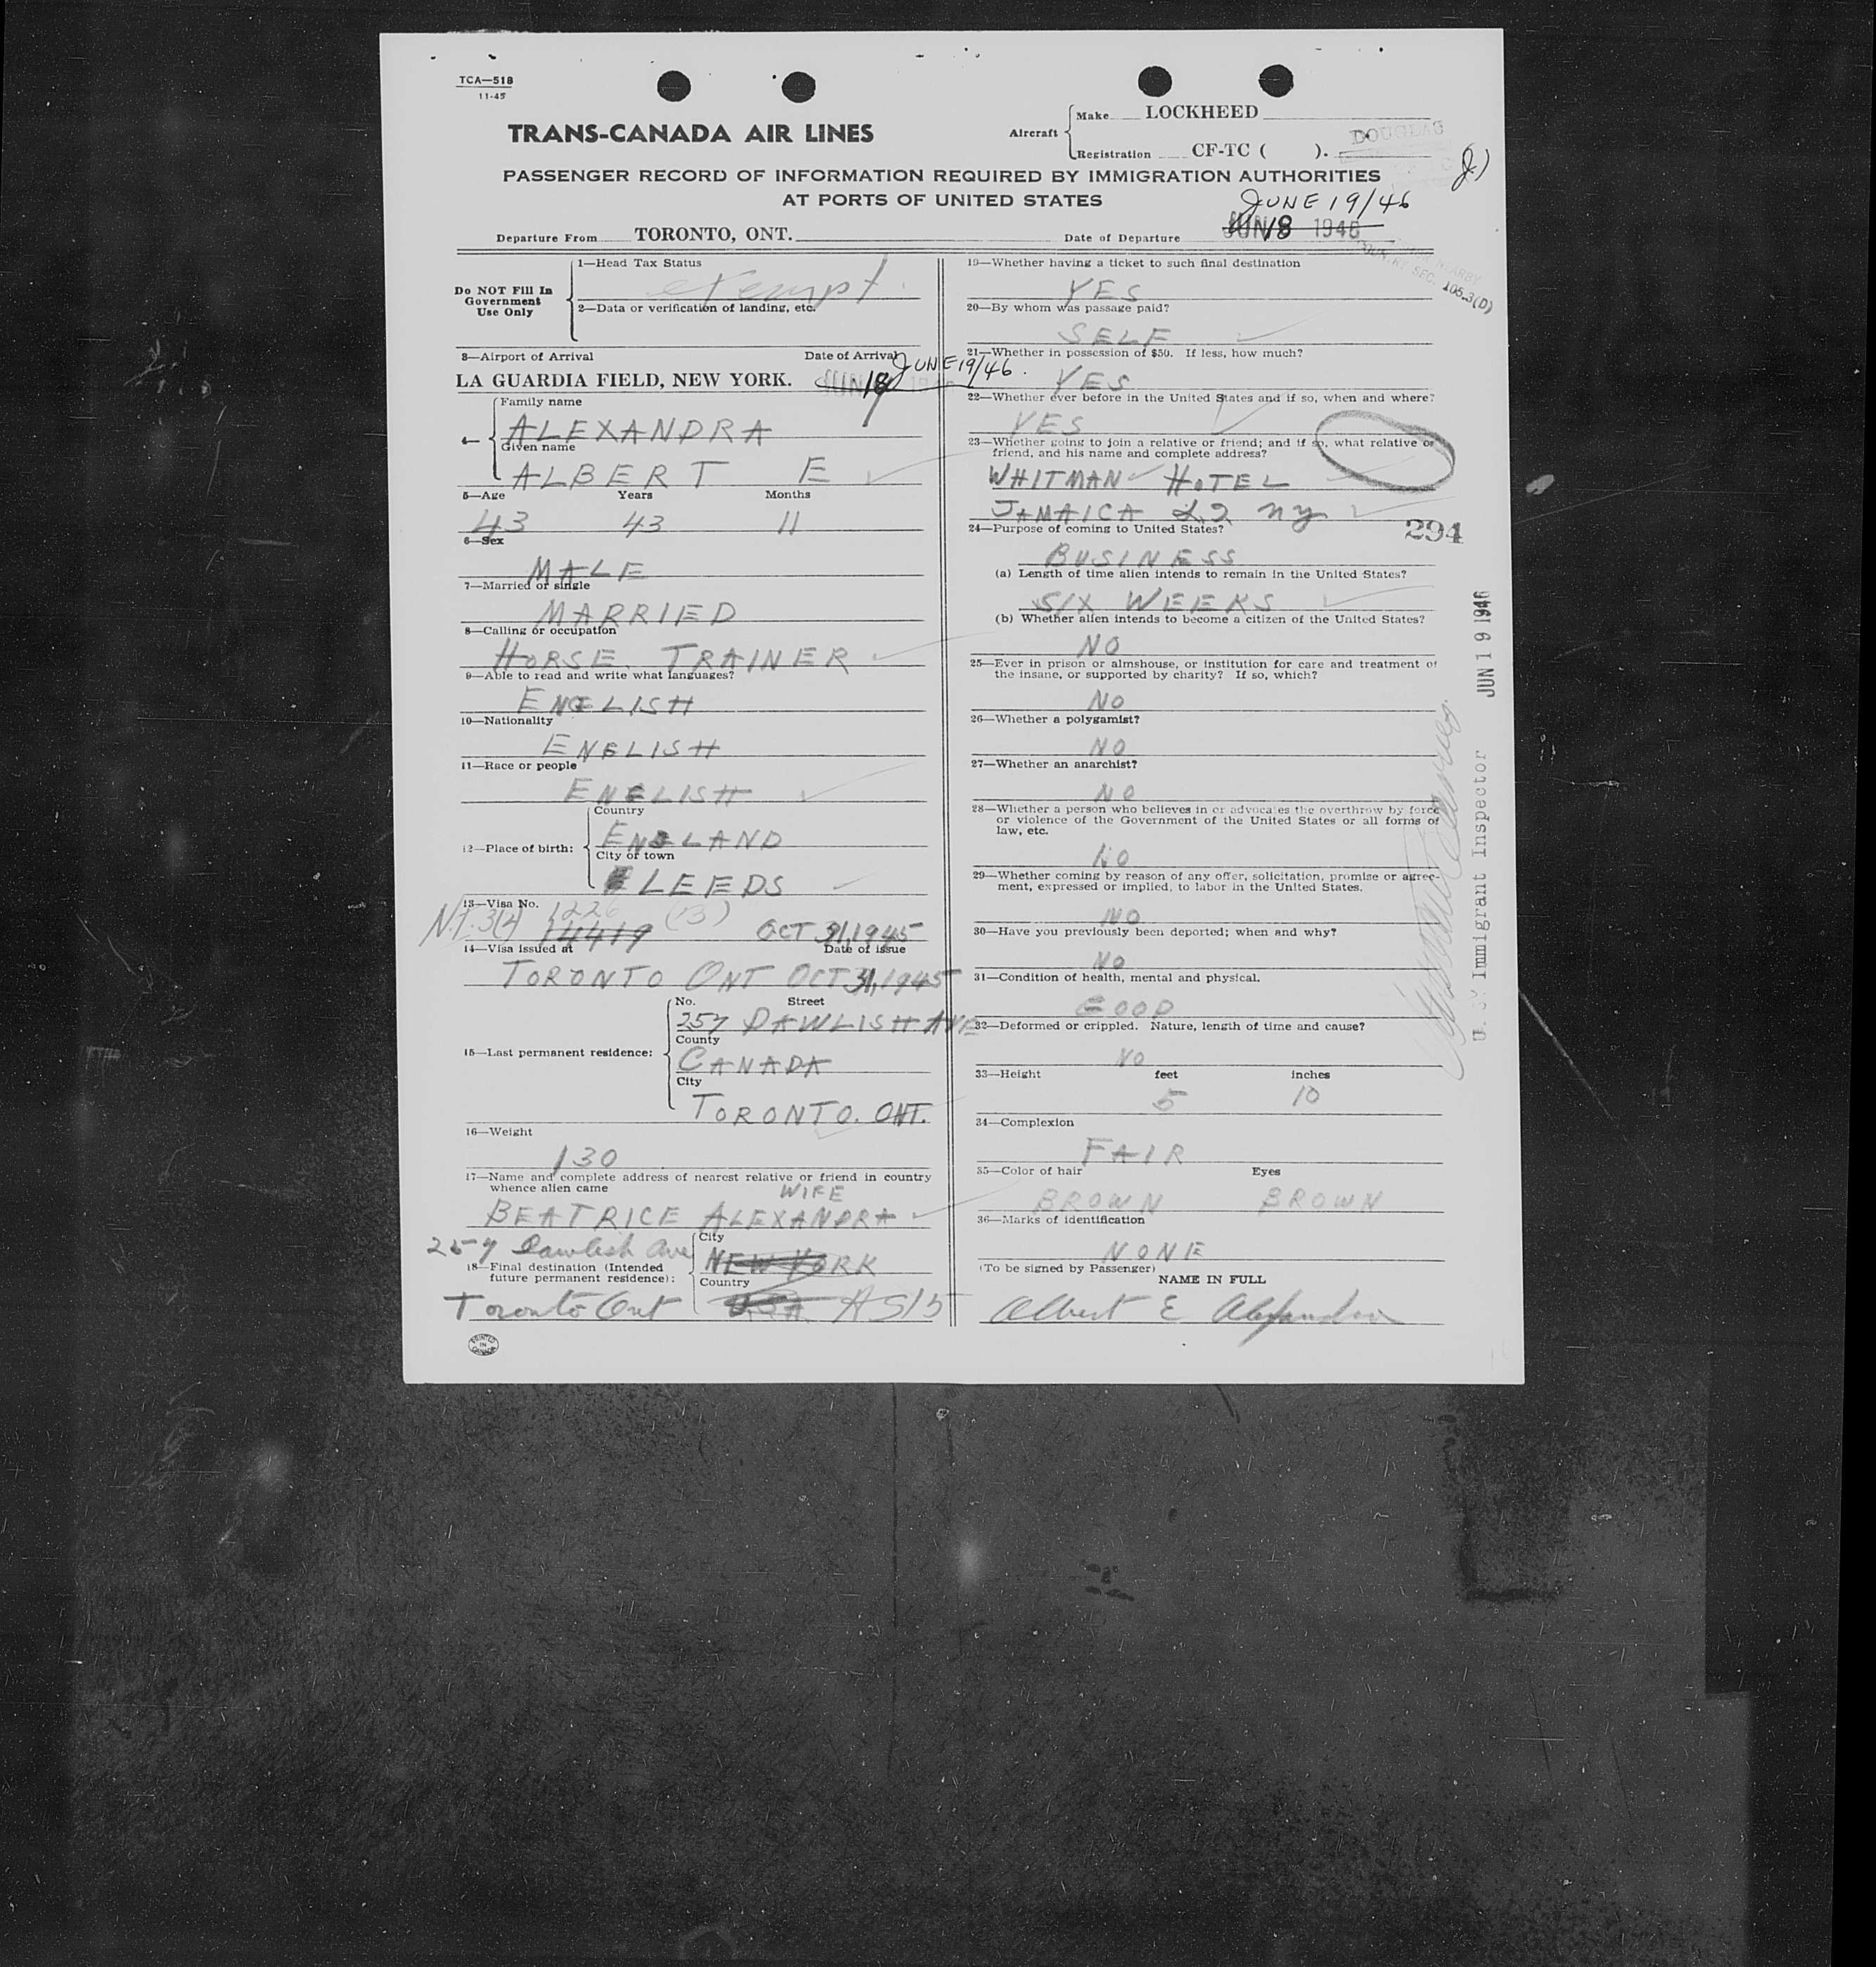 TCA—518
11-45
TRANS-CANADA AIR LINES
Aircraft
Make LOCKHEED
Registration CF-TC ( ).
DOUGLAS
PASSENGER RECORD OF INFORMATION REQUIRED BY IMMIGRATION AUTHORITIES
AT PORTS OF UNITED STATES
JUNE 19/46
Departure From TORONTO, ONT.
Date of Departure JUN 18 1946
105.3(D)
Do NOT Fill In
Government
Use Only
1—Head Tax Status
exempt
2—Data or verification of landing, etc.
3—Airport of Arrival Date of Arrival
JUNE 19/46.
LA GUARDIA FIELD, NEW YORK. JUN 18
4—
Family name
ALEXANDRA
Given name
ALBERT E
5—Age Years Months
43 43 11
6—Sex
MALE
7—Married or single
MARRIED
8—Calling or occupation
HORSE TRAINER
9—Able to read and write what languages?
ENGLISH
10—Nationality
ENGLISH
11—Race or people
ENGLISH
12—Place of birth:
Country
ENGLAND
City or town
LEEDS
13—Visa No.
1226
14419 OCT 31, 1945
14—Visa issued at Date of issue
TORONTO ONT OCT 31, 1945
15—Last permanent residence:
No. Street
257 DAWLISH AVE
County
CANADA
City
TORONTO. ONT.
16—Weight
130
17—Name and complete address of nearest relative or friend in country
whence alien came
WIFE
BEATRICE ALEXANDRA
257 Dawlish Ave
Toronto Ont
18—Final destination (Intended
future permanent residence):
City
NEW YORK
Country
USA
PRINTED
IN
CANADA
19—Whether having a ticket to such final destination
YES
20—By whom was passage paid?
SELF
21—Whether in possession of $50. If less, how much?
YES
22—Whether ever before in the United States and if so, when and where?
YES
23—Whether going to join a relative or friend; and if so, what relative or
friend, and his name and complete address?
WHITMAN HOTEL
JAMAICA L.I. NY
294
24—Purpose of coming to United States?
BUSINESS
(a) Length of time alien intends to remain in the United States?
SIX WEEKS
(b) Whether alien intends to become a citizen of the United States?
NO
25—Ever in prison or almshouse, or institution for care and treatment of
the insane, or supported by charity? If so, which?
NO
26—Whether a polygamist?
NO
27—Whether an anarchist?
NO
28—Whether a person who believes in or advocates the overthrow by force
or violence of the Government of the United States or all forms of
law, etc.
NO
29—Whether coming by reason of any offer, solicitation, promise or agree-
ment, expressed or implied, to labor in the United States.
NO
30—Have you previously been deported; when and why?
NO
31—Condition of health, mental and physical.
GOOD
32—Deformed or crippled. Nature, length of time and cause?
NO
33—Height feet inches
5 10
34—Complexion
FAIR
35—Color of hair Eyes
BROWN BROWN
36—Marks of identification
NONE
(To be signed by Passenger)
NAME IN FULL
Albert E Alexandra
U. S. Immigrant Inspector JUN 19 1946